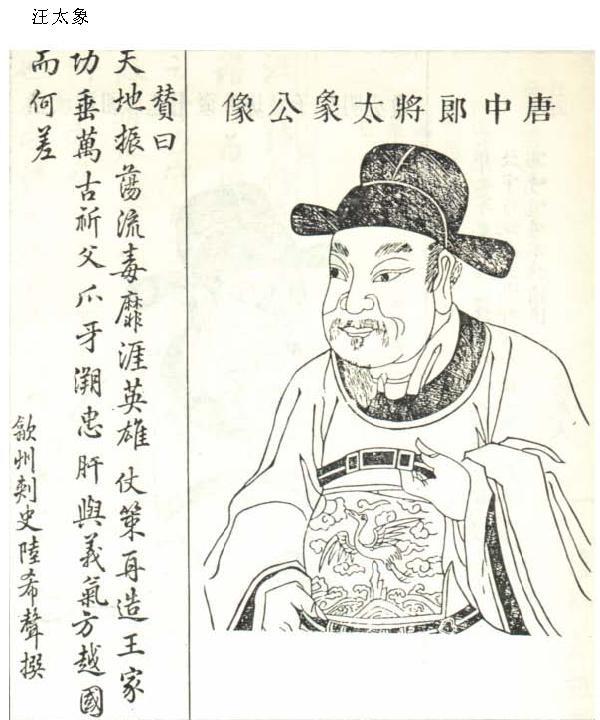 汪太象
唐中郎將太象公像
贊曰
天地振蕩流毒靡涯英雄仗策再造王家
功垂萬古祈父爪牙溯忠肝與義氣方越國
而何差
歙州刺史陸希聲撰